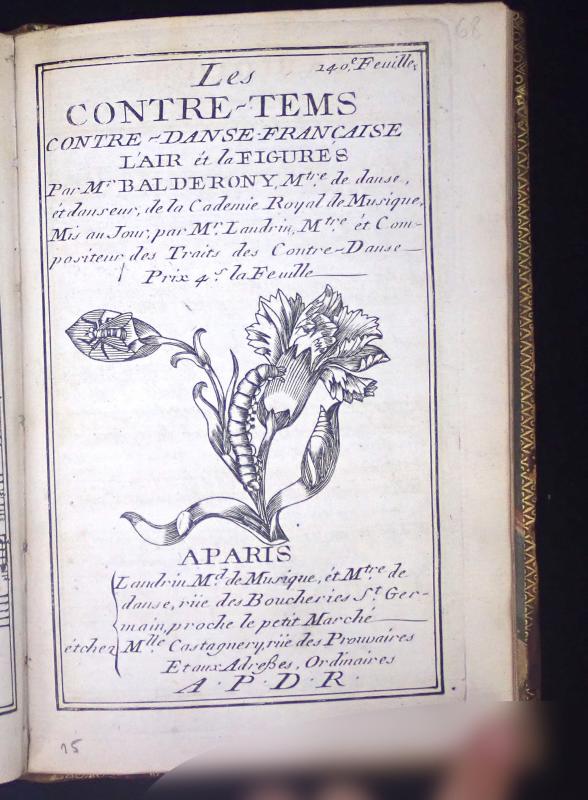 68
140.e Feuille.
Les
CONTRE-TEMS
CONTRE-DANSE-FRANÇAISE
L'AIR ét la FIGURES
Par Mr. BALDERONY, Mtre. de danse,
ét danseur, de la Cademie Royal de Musique,
Mis au Jour, par Mr. Landrin, Mtre ét Com-
positeur des Traits des Contre-Danse
Prix 4s. la Feuille
APARIS
Landrin Md. de Musique, ét Mtre. de
danse, rüe des Boucheries St. Ger-
main, proche le petit Marché
ét chez Mlle Castagnery, rüe des Prouvaires
Et aux Adreßes, Ordinaires
A. P. D. R.
15